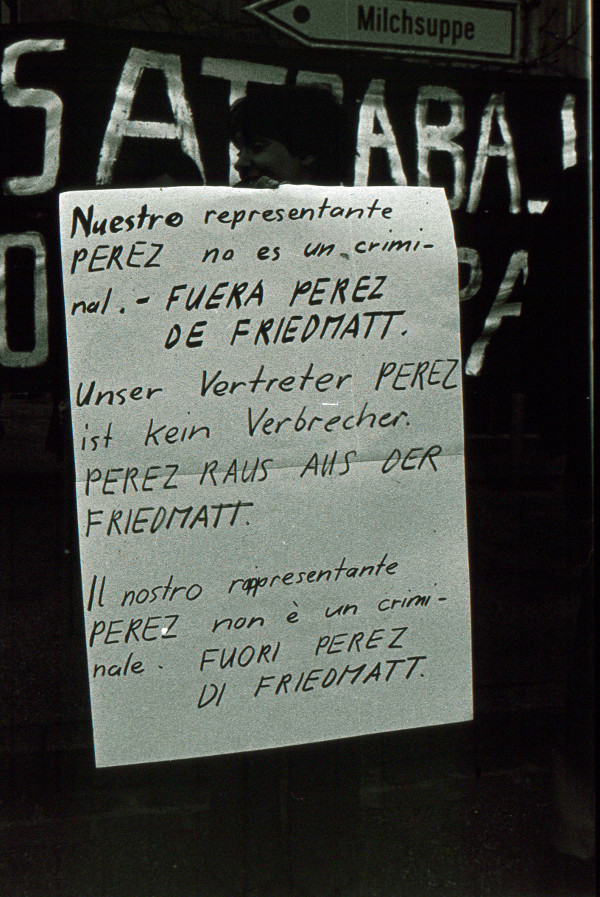 Milchsuppe
SATRABA.!
Nuestro representante
PEREZ no es un crimi-
nal.- FUERA PEREZ
DE FRIEDMATT.
Unser Vertreter PEREZ
ist kein Verbrecher.
PEREZ RAUS AUS DER
FRIEDMATT.
Il nostro rappresentante
PEREZ non è un crimi-
nale. FUORI PEREZ
DI FRIEDMATT.